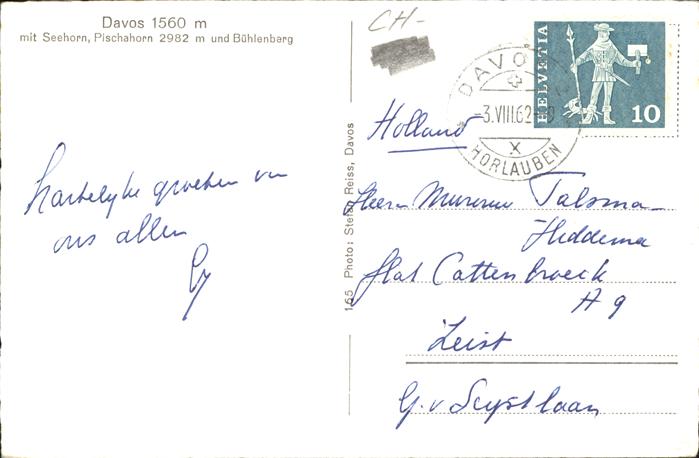 Davos 1560 m
mit Seehorn, Pischahorn 2982 m und Bühlenberg
CH-
HELVETIA
10
DAVOS
-3.VIII.62
HORLAUBEN
Holland
Hartelyke groeten van
ons allen
165 Photo: Stefan Reiss, Davos
Talsma-
Heddema
flat Cattenbroeck
A 9
Zeist
G. v Seystlaan